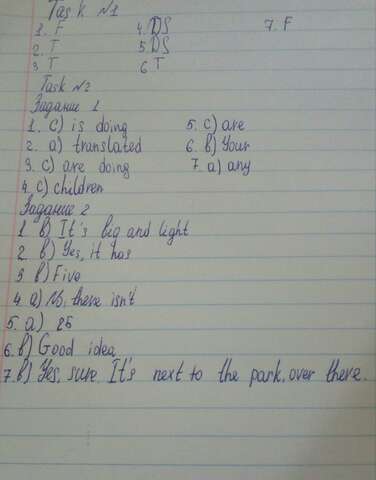 Task №1
1. F 4. DS 7. F
2. T 5. DS
3 T 6 T
Task №2
Задание 1
1. c) is doing 5. c) are
2. a) translated 6. b) Your
3. c) are doing 7. a) any
4. c) children
Задание 2
1 b) It's big and light
2. b) Yes, it has
3 b) Five
4. a) No, there isn't
5. a) 25
6. b) Good idea
7. b) Yes, sure. It's next to the park, over there.